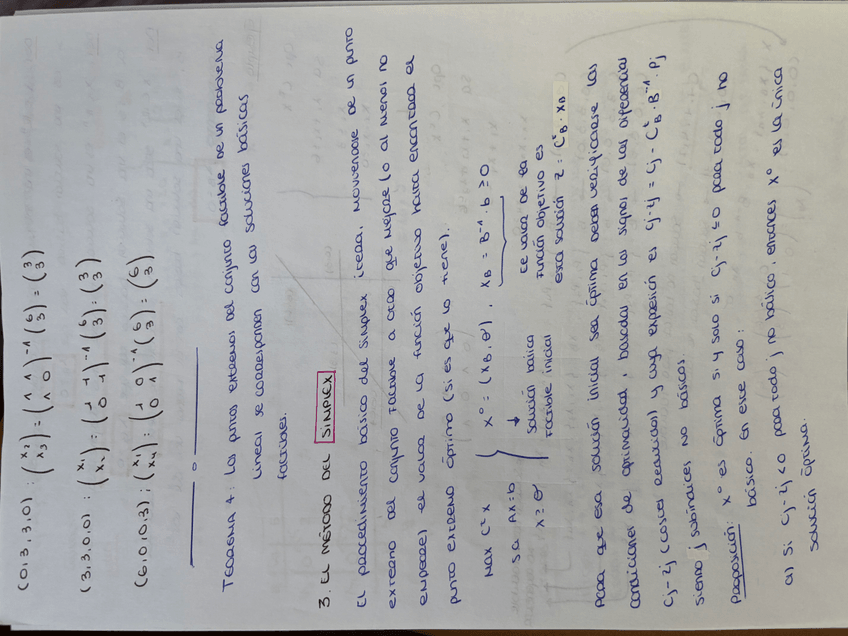 (0,3,3,0) : (x₂ x₃) = (1 1 1 0)⁻¹ (6 3) = (3 3)
(3,3,0,0) : (x₁ x₂) = (1 1 0 1)⁻¹ (6 3) = (3 3)
(6,0,0,3) : (x₁ x₄) = (1 0 0 1)⁻¹ (6 3) = (6 3)
TEOREMA 4 : Los puntos extremos del conjunto factible de un problema
lineal se corresponden con las soluciones básicas
factibles.
3. EL MÉTODO DEL SIMPLEX
El procedimiento básico del Simplex itera, moviendose de un punto
extremo del conjunto factible a otro que mejore (o al menos no
empeore) el valor de la función objetivo hasta encontrar el
punto extremo óptimo (si es que lo tiene).
Max Cᵗx
s.a Ax=b
x ≥ θ
x⁰ = (xB, θ), xB = B⁻¹·b ≥ 0
Solución básica
factible inicial
El valor de la
función objetivo es
esta solución z = CᵗB · XB
Para que esa solución inicial sea óptima deben verificarse las
condiciones de optimalidad, basadas en los signos de las diferencias
Cj - zj (costes reducidos) y cuya expresión es Cj - zj = Cj - CᵗB · B⁻¹ · Pj
siendo j subíndices no básicos.
Proposición: x⁰ es óptima si y solo si Cj - zj ≤ 0 para todo j no
básico. En este caso:
a) Si Cj - zj < 0 para todo j no básico, entonces x⁰ es la única
solución óptima.